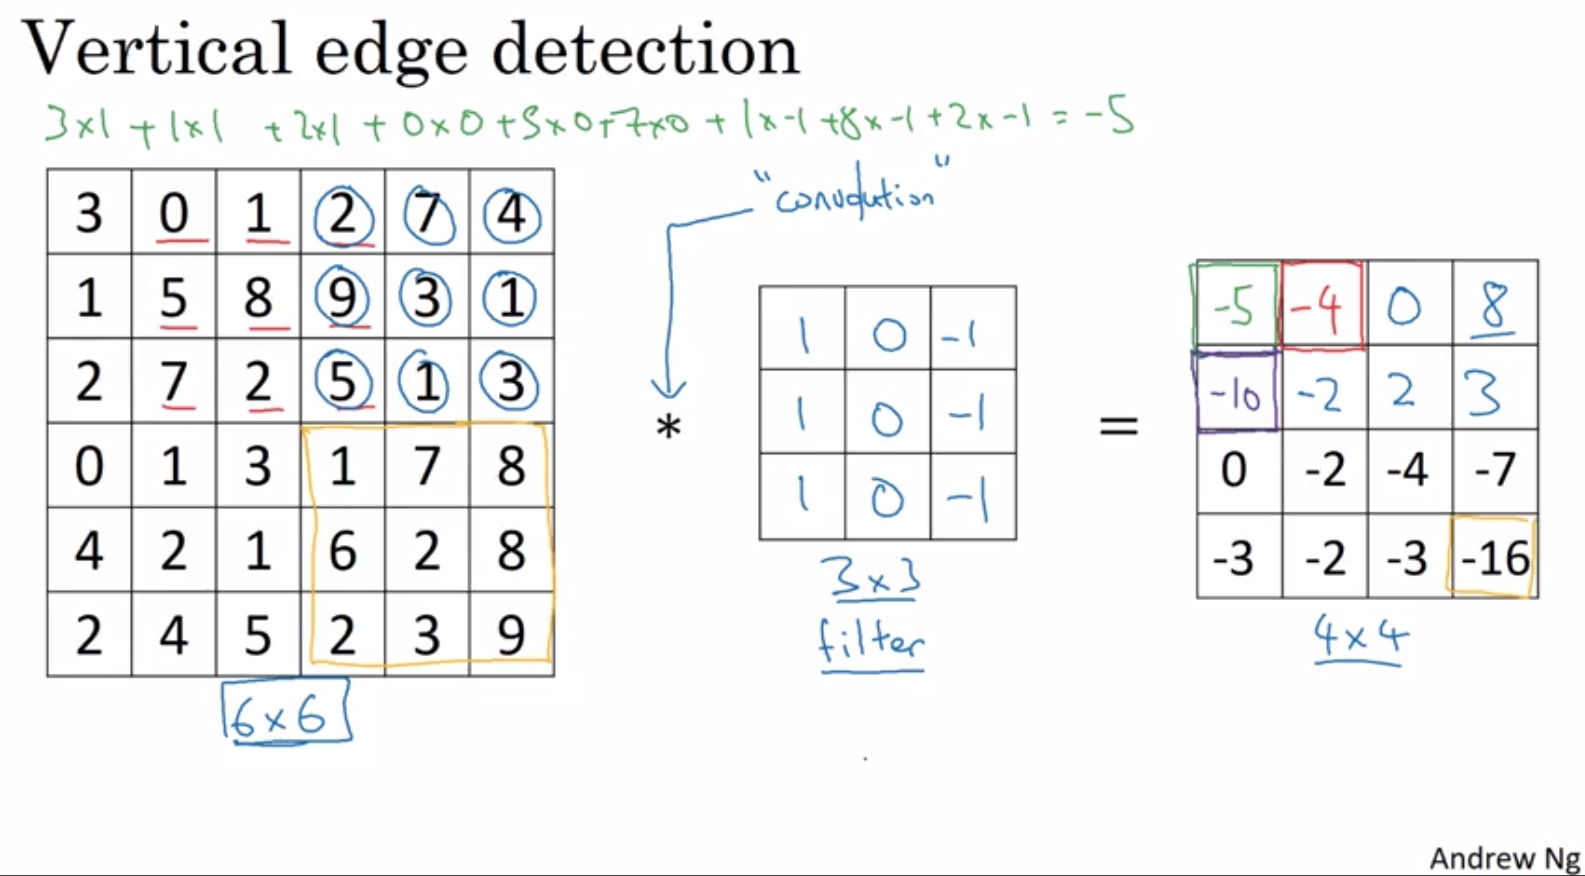 Vertical edge detection
3x1 + 1x1 + 2x1 + 0x0 + 5x0 + 7x0 + 1x-1 + 8x-1 + 2x-1 = -5
"convolution"
3 0 1 2 7 4
1 5 8 9 3 1
2 7 2 5 1 3
0 1 3 1 7 8
4 2 1 6 2 8
2 4 5 2 3 9
6x6
*
1 0 -1
1 0 -1
1 0 -1
3x3
filter
=
-5 -4 0 8
-10 -2 2 3
0 -2 -4 -7
-3 -2 -3 -16
4x4
Andrew Ng